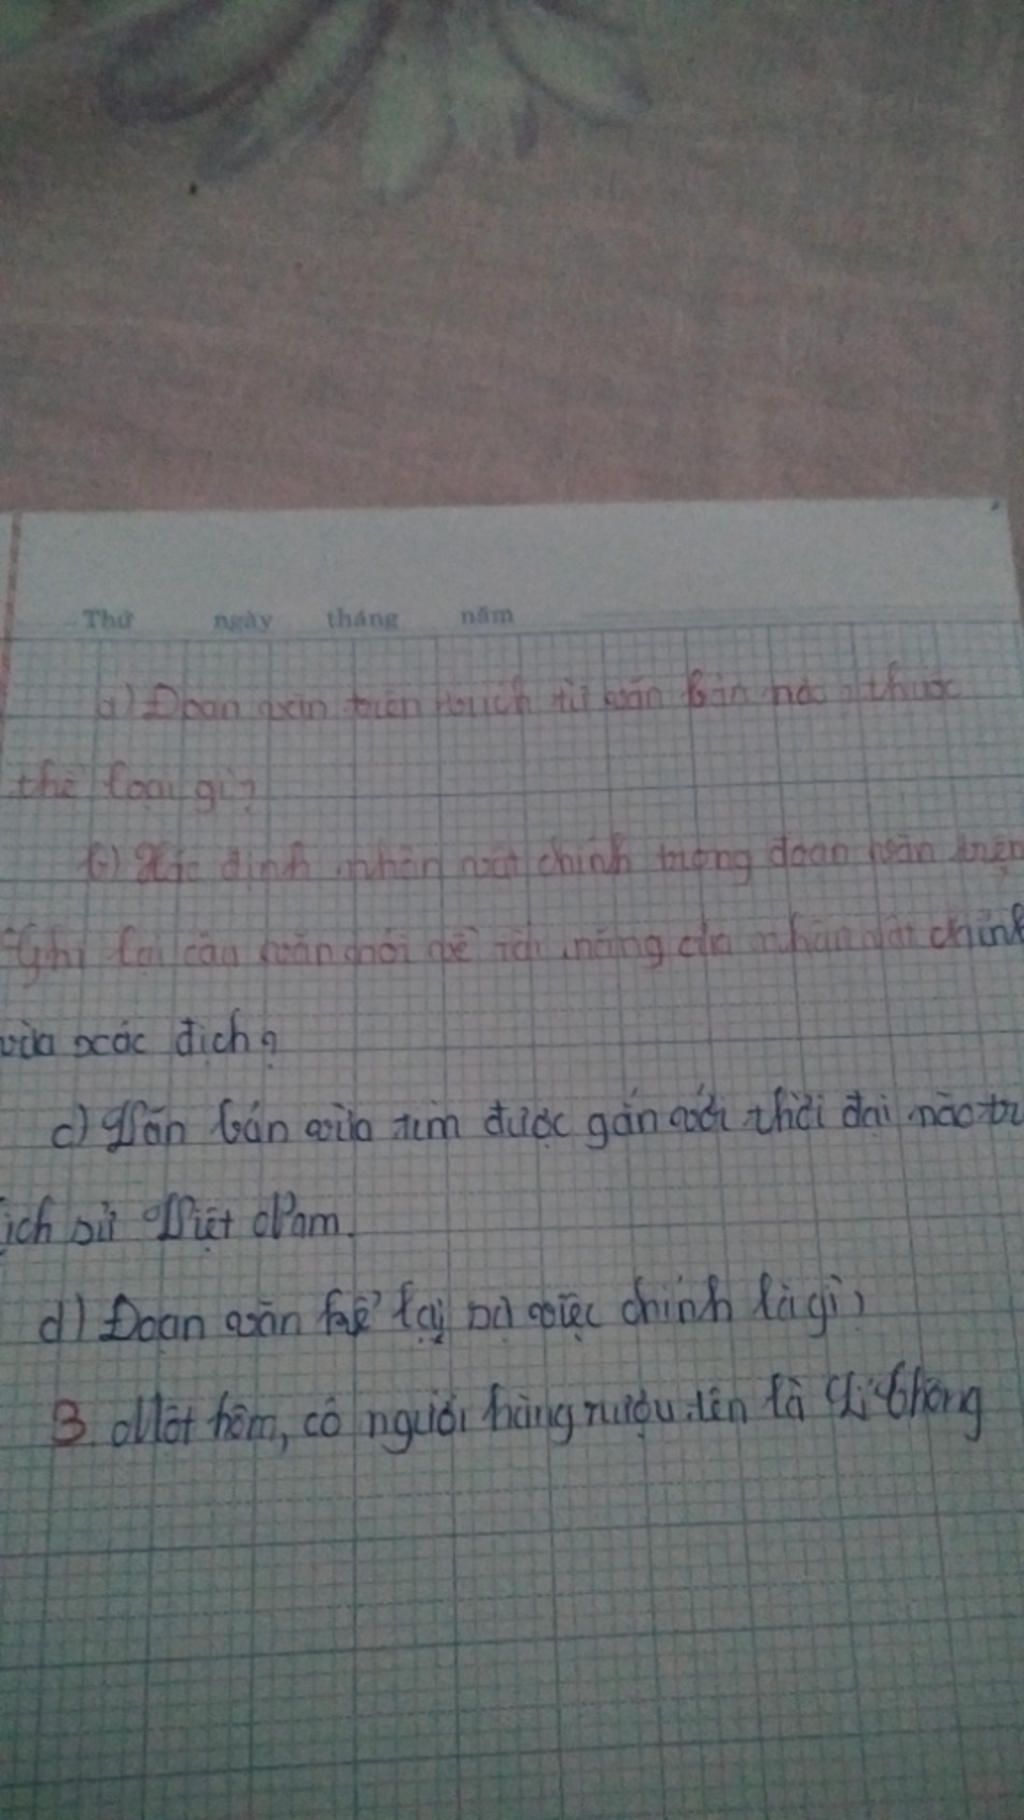 Thứ ngày tháng năm
a) Đoạn văn trên trích từ văn bản nào, thuộc
thể loại gì?
b) Xác định nhân vật chính trong đoạn văn trên
Ghi lại câu văn nói về tài năng của nhân vật chính
vừa xác địch?
c) Văn bản vừa tìm được gắn với thời đại nào tr
lịch sử Việt Nam.
d) Đoạn văn kể lại sự việc chính là gì?
3 Một hôm, có người hàng rượu tên là Lí Thông